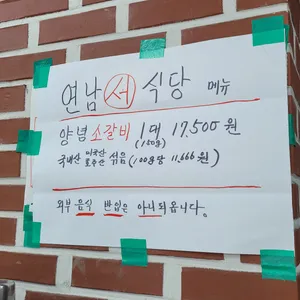 연남 서 식당 메뉴
양념 소갈비 1대 17,500원
(150g)
국내산 미국산 호주산 섞음 (100g당 11,666원)
외부 음식 반입은 아니되옵니다.